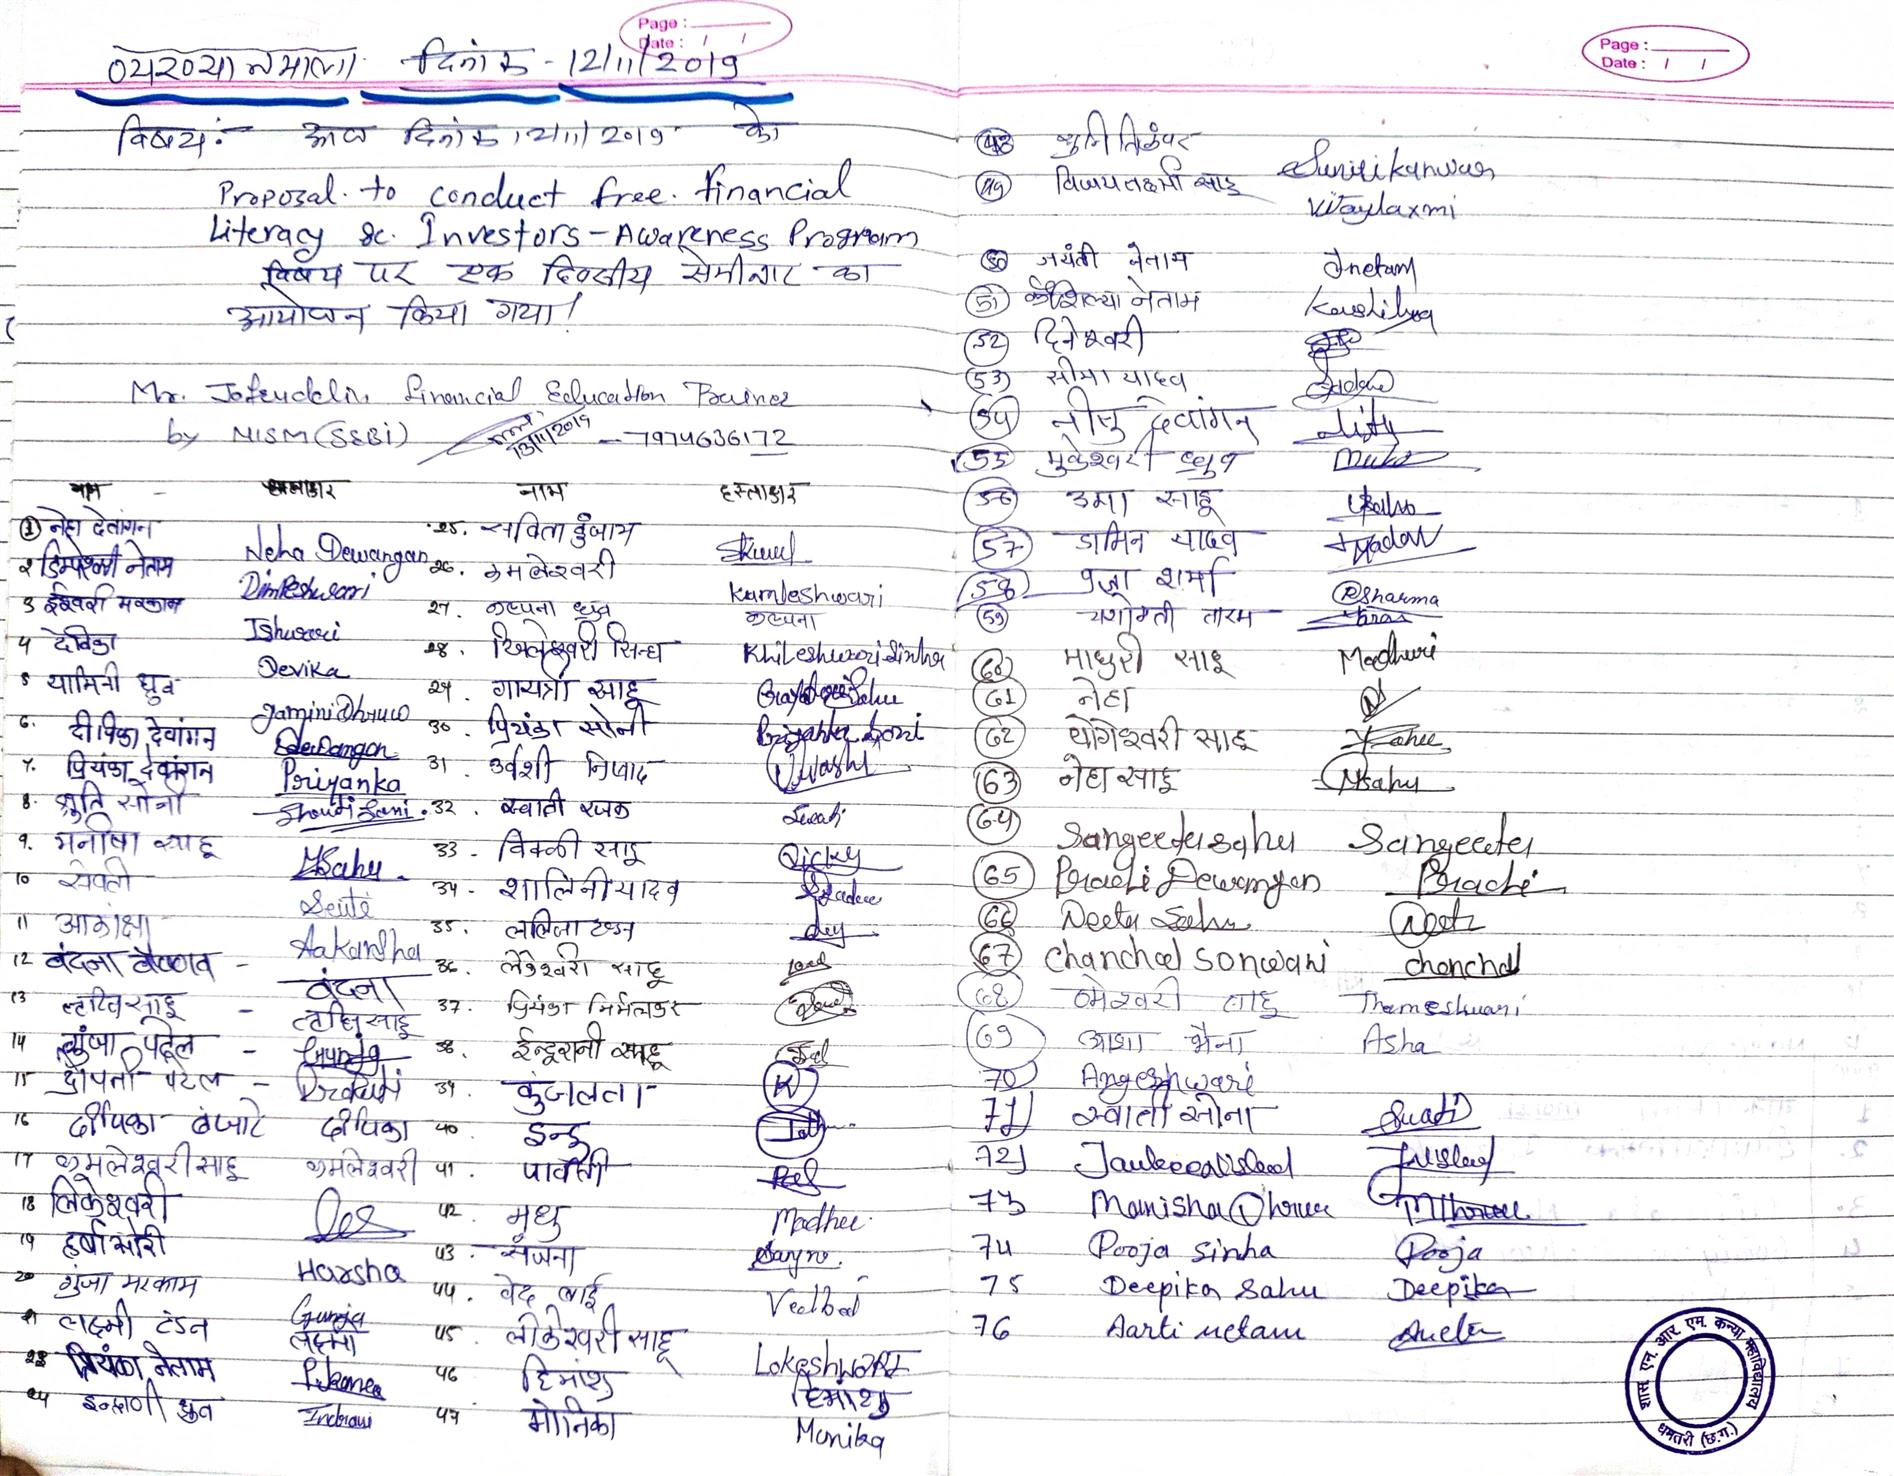 Page :
Date : / /
व्याख्यानमाला दिनांक - 12/11/2019
विषय :- आज दिनांक 12/11/2019 को
Proposal to conduct free financial
Literacy & Investors-Awareness Program
विषय पर एक दिवसीय सेमीनार का
आयोजन किया गया!
Mr. Jafruddin financial Education Trainer
by NISM (SEBI) 13/11/2019 - 7974636172
नाम - हस्ताक्षर
① नेहा देवांगन Neha Dewangan
2 डिम्पेश्वरी नेताम Dimpeshwari
3 ईश्वरी मरकाम Ishwari
4 देविका Devika
5 यामिनी ध्रुव Yamini Dhruw
6. दीपिका देवांगन Dewangan
7. प्रियंका देवांगन Priyanka
8. श्रुति सोनी Shruti Soni
9. मनीषा साहू MSahu
10 सेवती Seuti
11 आकांक्षा Aakansha
12 वंदना वैष्णव - वंदना
13 साहू - साहू
14 गुंजा पटेल - Gunja
15 द्रौपती पटेल -
16 दीपिका बंजारे दीपिका
17 कमलेश्वरी साहू कमलेश्वरी
18 लिकेश्वरी
19 हर्षा Harsha
20 गुंजा मरकाम Gunja
21 लक्ष्मी टंडन लक्ष्मी
प्रियंका नेताम
24 इन्द्राणी ध्रुव Indrani
नाम हस्ताक्षर
25. सविता कुंजाम
26. कमलेश्वरी Kamleshwari
27. कल्पना ध्रुव कल्पना
28. खिलेश्वरी सिन्हा Khileshwari Sinha
29. गायत्री साहू
30. प्रियंका सोनी Priyanka Soni
31. उर्वशी निषाद Urvashi
32. स्वाती रजक Swati
33 - विक्की साहू Vicky
34 - शालिनी यादव
35. टण्डन
36. साहू
37. प्रियंका निर्मलकर
38. ईन्दुरानी साहू
39. कुंजलता K
40. इन्दू
41. पार्वती
42. मधु Madhu
43 - संजना
44. वेद बाई Vedbai
45. लोकेश्वरी साहू Lokeshwari
46 हिमांशु हिमांशु
47 मोनिका Monika
Page :
Date : / /
48 Suniti kanwar
49 विजयलक्ष्मी साहू Vijaylaxmi
50 जयंती नेताम Jnetam
51 कौशिल्या नेताम Kaushilya
52 दिनेश्वरी
53 सीमा यादव
54 देवांगन
55 मुकेश्वरी ध्रुव
56 उमा साहू
57 डामिन यादव
58 पूजा शर्मा PSharma
59 तारम
60 माधुरी साहू Madhuri
61 नेहा N
62 योगेश्वरी साहू YSahu
63 नेहा साहू NSahu
64 Sangeeta sahu Sangeeta
65 Prachi Dewangan Prachi
66 Neetu Sahu Neetu
67 Chanchal Sonwani Chanchal
68 ठमेश्वरी साहू Thameshwari
69 आशा नैना Asha
70 Angeshwari
71 स्वाती सोना Swati
72
73 Manisha Dhruw MDhruw
74 Pooja Sinha Pooja
75 Deepika Sahu Deepika
76 Aarti netam
शास. एन. आर. एम. कन्या महाविद्यालय
धमतरी (छ.ग.)